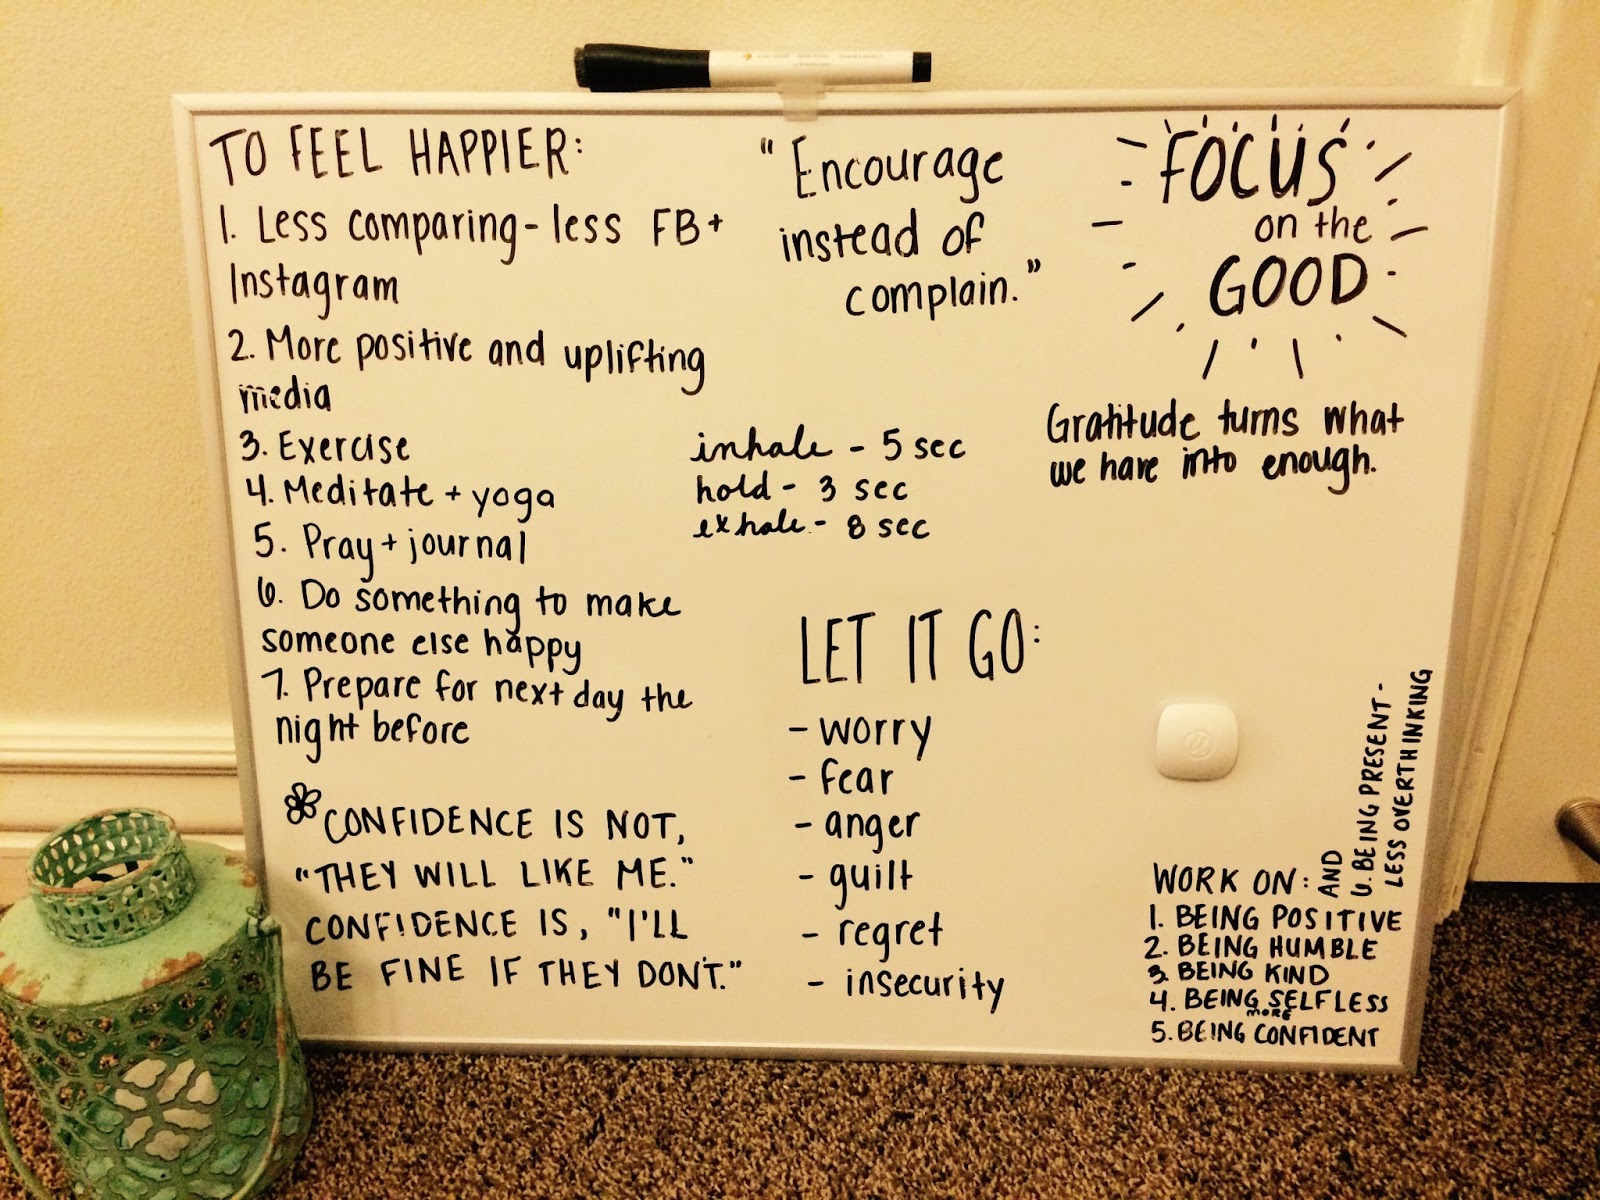 TO FEEL HAPPIER:
1. Less comparing - less FB +
Instagram
2. More positive and uplifting
media
3. Exercise
4. Meditate + yoga
5. Pray + journal
6. Do something to make
someone else happy
7. Prepare for next day the
night before
CONFIDENCE IS NOT,
"THEY WILL LIKE ME."
CONFIDENCE IS, "I'LL
BE FINE IF THEY DON'T."
"Encourage
instead of
complain."
inhale - 5 sec
hold - 3 sec
exhale - 8 sec
LET IT GO:
- worry
- fear
- anger
- guilt
- regret
- insecurity
FOCUS
on the
GOOD
Gratitude turns what
we have into enough.
WORK ON:
1. BEING POSITIVE
2. BEING HUMBLE
3. BEING KIND
4. BEING SELFLESS
5. BEING more CONFIDENT
AND
6. BEING PRESENT -
LESS OVERTHINKING